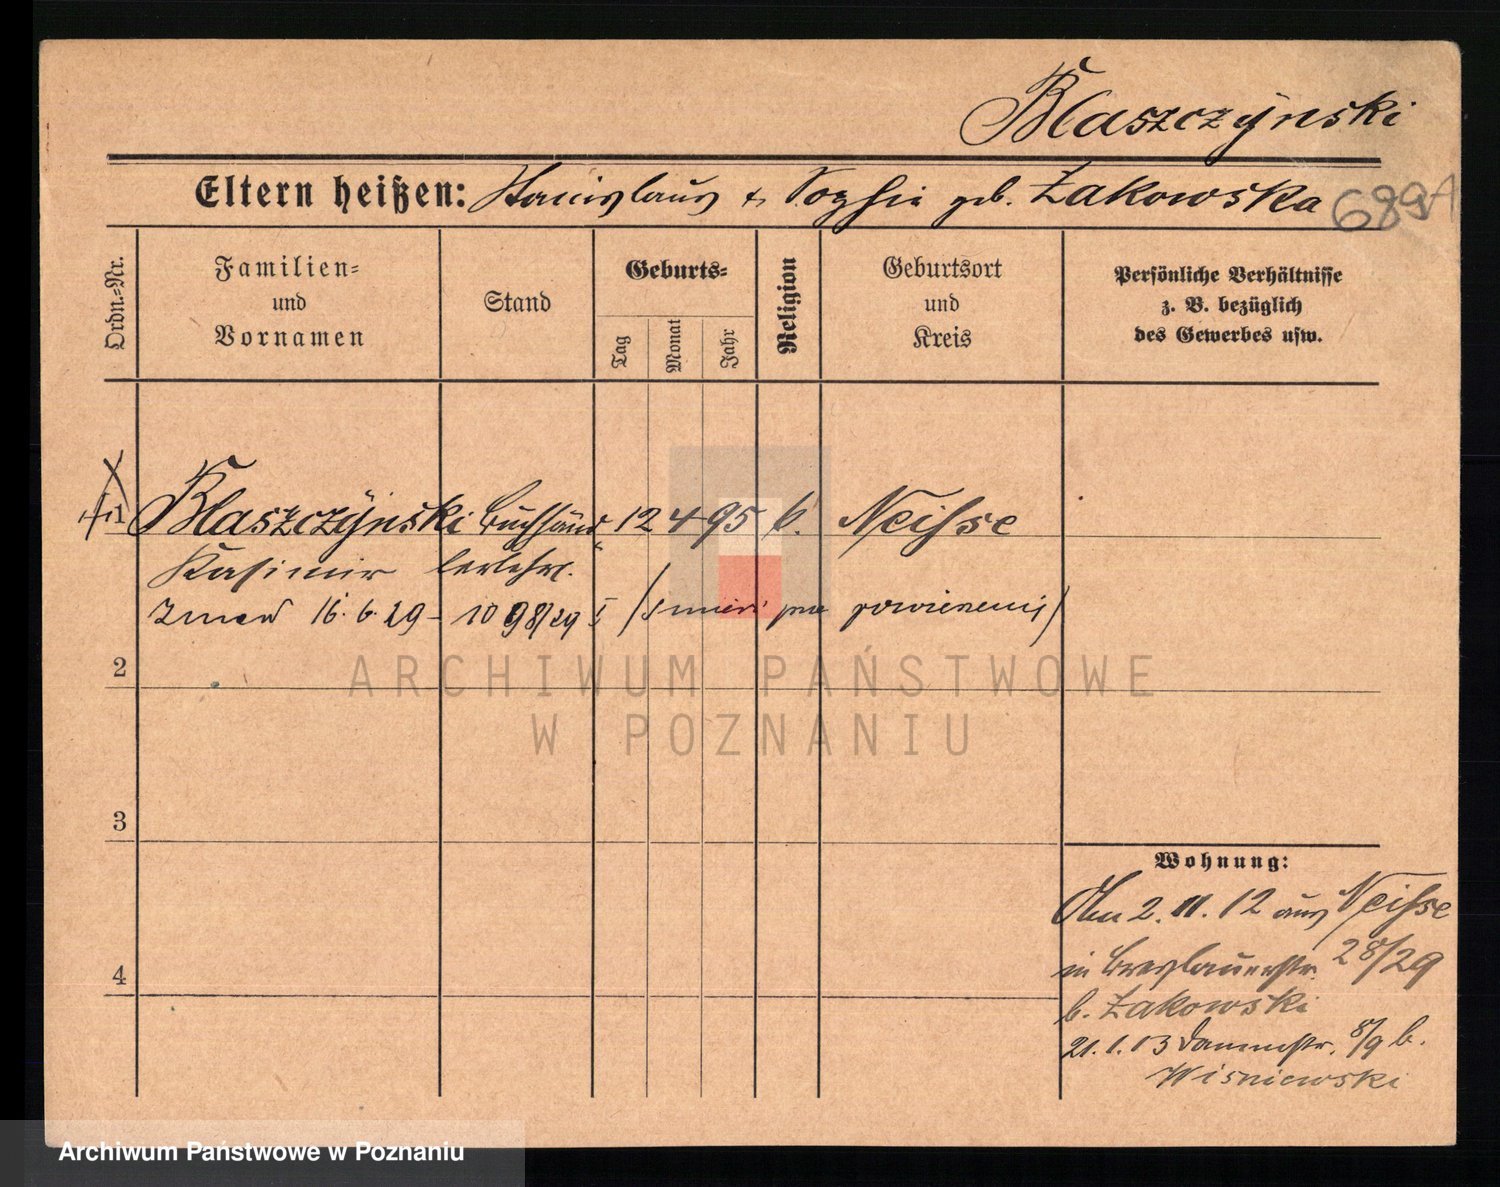 Blaszczÿnski
Eltern heißen: Stanislaus & Sophie geb. Zakowska 689A
Ordn.-Nr.
Familien-
und
Vornamen
Stand
Geburts-
Tag
Monat
Jahr
Religion
Geburtsort
und
Kreis
Persönliche Verhältnisse
z. B. bezüglich
des Gewerbes usw.
1 Blaszczÿnski Buchhänd- 12 4 95 k. Neisse
Kasimir lerlehrl.
16.6.29 - 10 98/29 I
2
ARCHIWUM PAŃSTWOWE
W POZNANIU
3
4
Wohnung:
Am 2.11.12 aus Neisse
in Breslauerstr. 28/29
b. Zakowski
21.1.13 Dammstr. 8/9 b.
Wisniewski
Archiwum Państwowe w Poznaniu